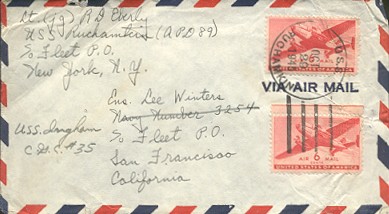 Lt (jg) R D Curly
USS Ruchamkin (APD 89)
℅ Fleet P.O.
New York, N.Y.
VIA AIR MAIL
Ens. Lee Winters
Navy Number 3254
℅ Fleet P.O.
San Francisco
California
USS. Ingham
C.G.C. #35
UNITED STATES OF AMERICA
AIR 6 MAIL
CENTS
UNITED STATES OF AMERICA